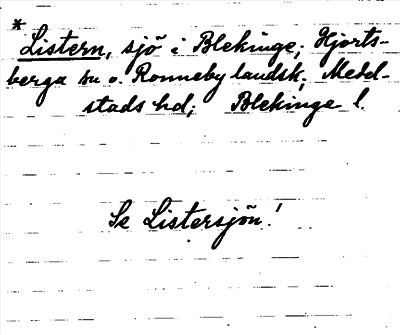 *
Listern, sjö i Blekinge; Hjorts-
berga sn o. Ronneby landsk., Medel-
stads hd; Blekinge l.
Se Listersjön!